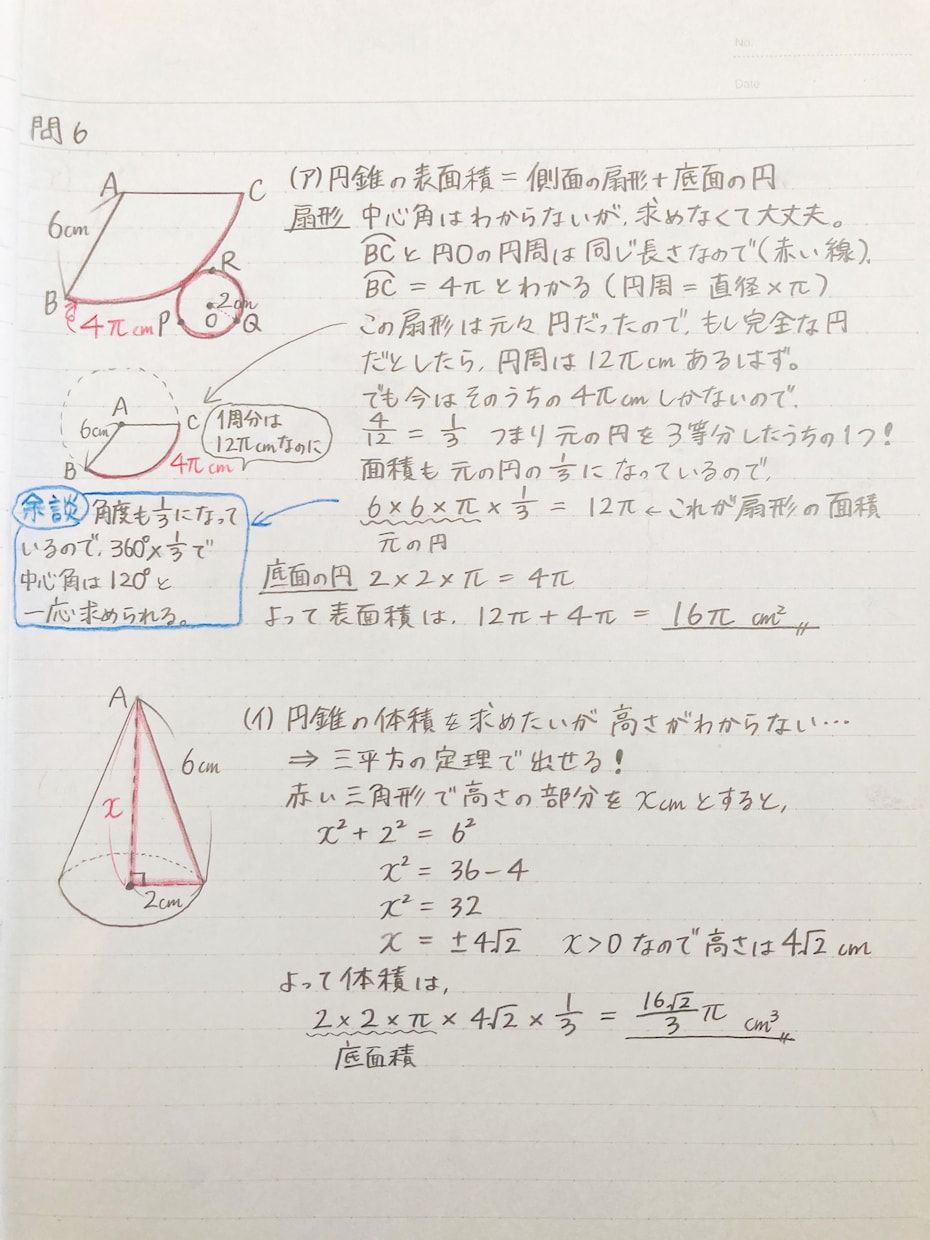 No.
Date
問6
A
C
6cm
B
R
2cm
O
P
Q
4πcm
(ア) 円錐の表面積 = 側面の扇形 + 底面の円
扇形 中心角はわからないが、求めなくて大丈夫。
BCと円Oの円周は同じ長さなので(赤い線)、
BC = 4π とわかる (円周 = 直径×π)
この扇形は元々円だったので、もし完全な円
だとしたら、円周は12πcmあるはず。
でも今はそのうちの4πcmしかないので、
4/12 = 1/3 つまり元の円を3等分したうちの1つ!
面積も元の円の1/3になっているので、
6×6×π×1/3 = 12π ← これが扇形の面積
元の円
A
6cm
C
B
4πcm
1周分は
12πcmなのに
余談 角度も1/3になって
いるので、360°×1/3で
中心角は120°と
一応求められる。
底面の円 2×2×π = 4π
よって表面積は、12π + 4π = 16π cm²
A
6cm
x
2cm
(イ) 円錐の体積を求めたいが高さがわからない…
⇒ 三平方の定理で出せる!
赤い三角形で高さの部分をxcmとすると、
x² + 2² = 6²
x² = 36 − 4
x² = 32
x = ±4√2 x>0 なので高さは4√2 cm
よって体積は、
2×2×π×4√2×1/3 = 16√2/3 π cm³
底面積